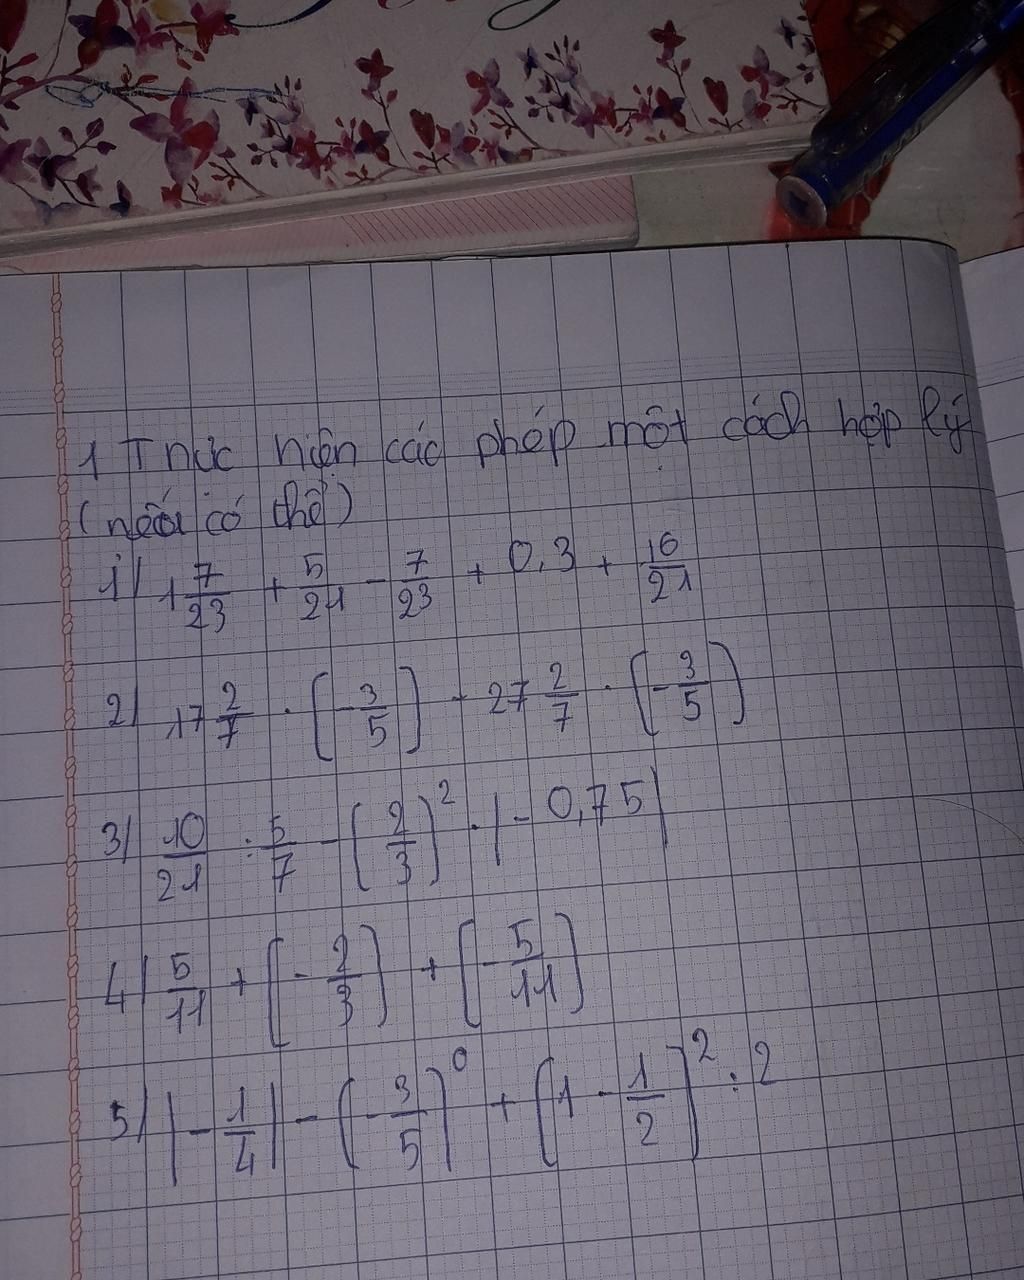 1 Thực hiện các phép một cách hợp lý
(nếu có thể)
1/ 1 7/23 + 5/21 - 7/23 + 0,3 + 16/21
2/ 17 2/7 . (-3/5) - 27 2/7 . (-3/5)
3/ 10/21 : 5/7 - (2/3)² . |-0,75|
4/ 5/11 + (-2/3) + (-5/11)
5/ |-1/4| - (-3/5)⁰ + (1 - 1/2)² : 2